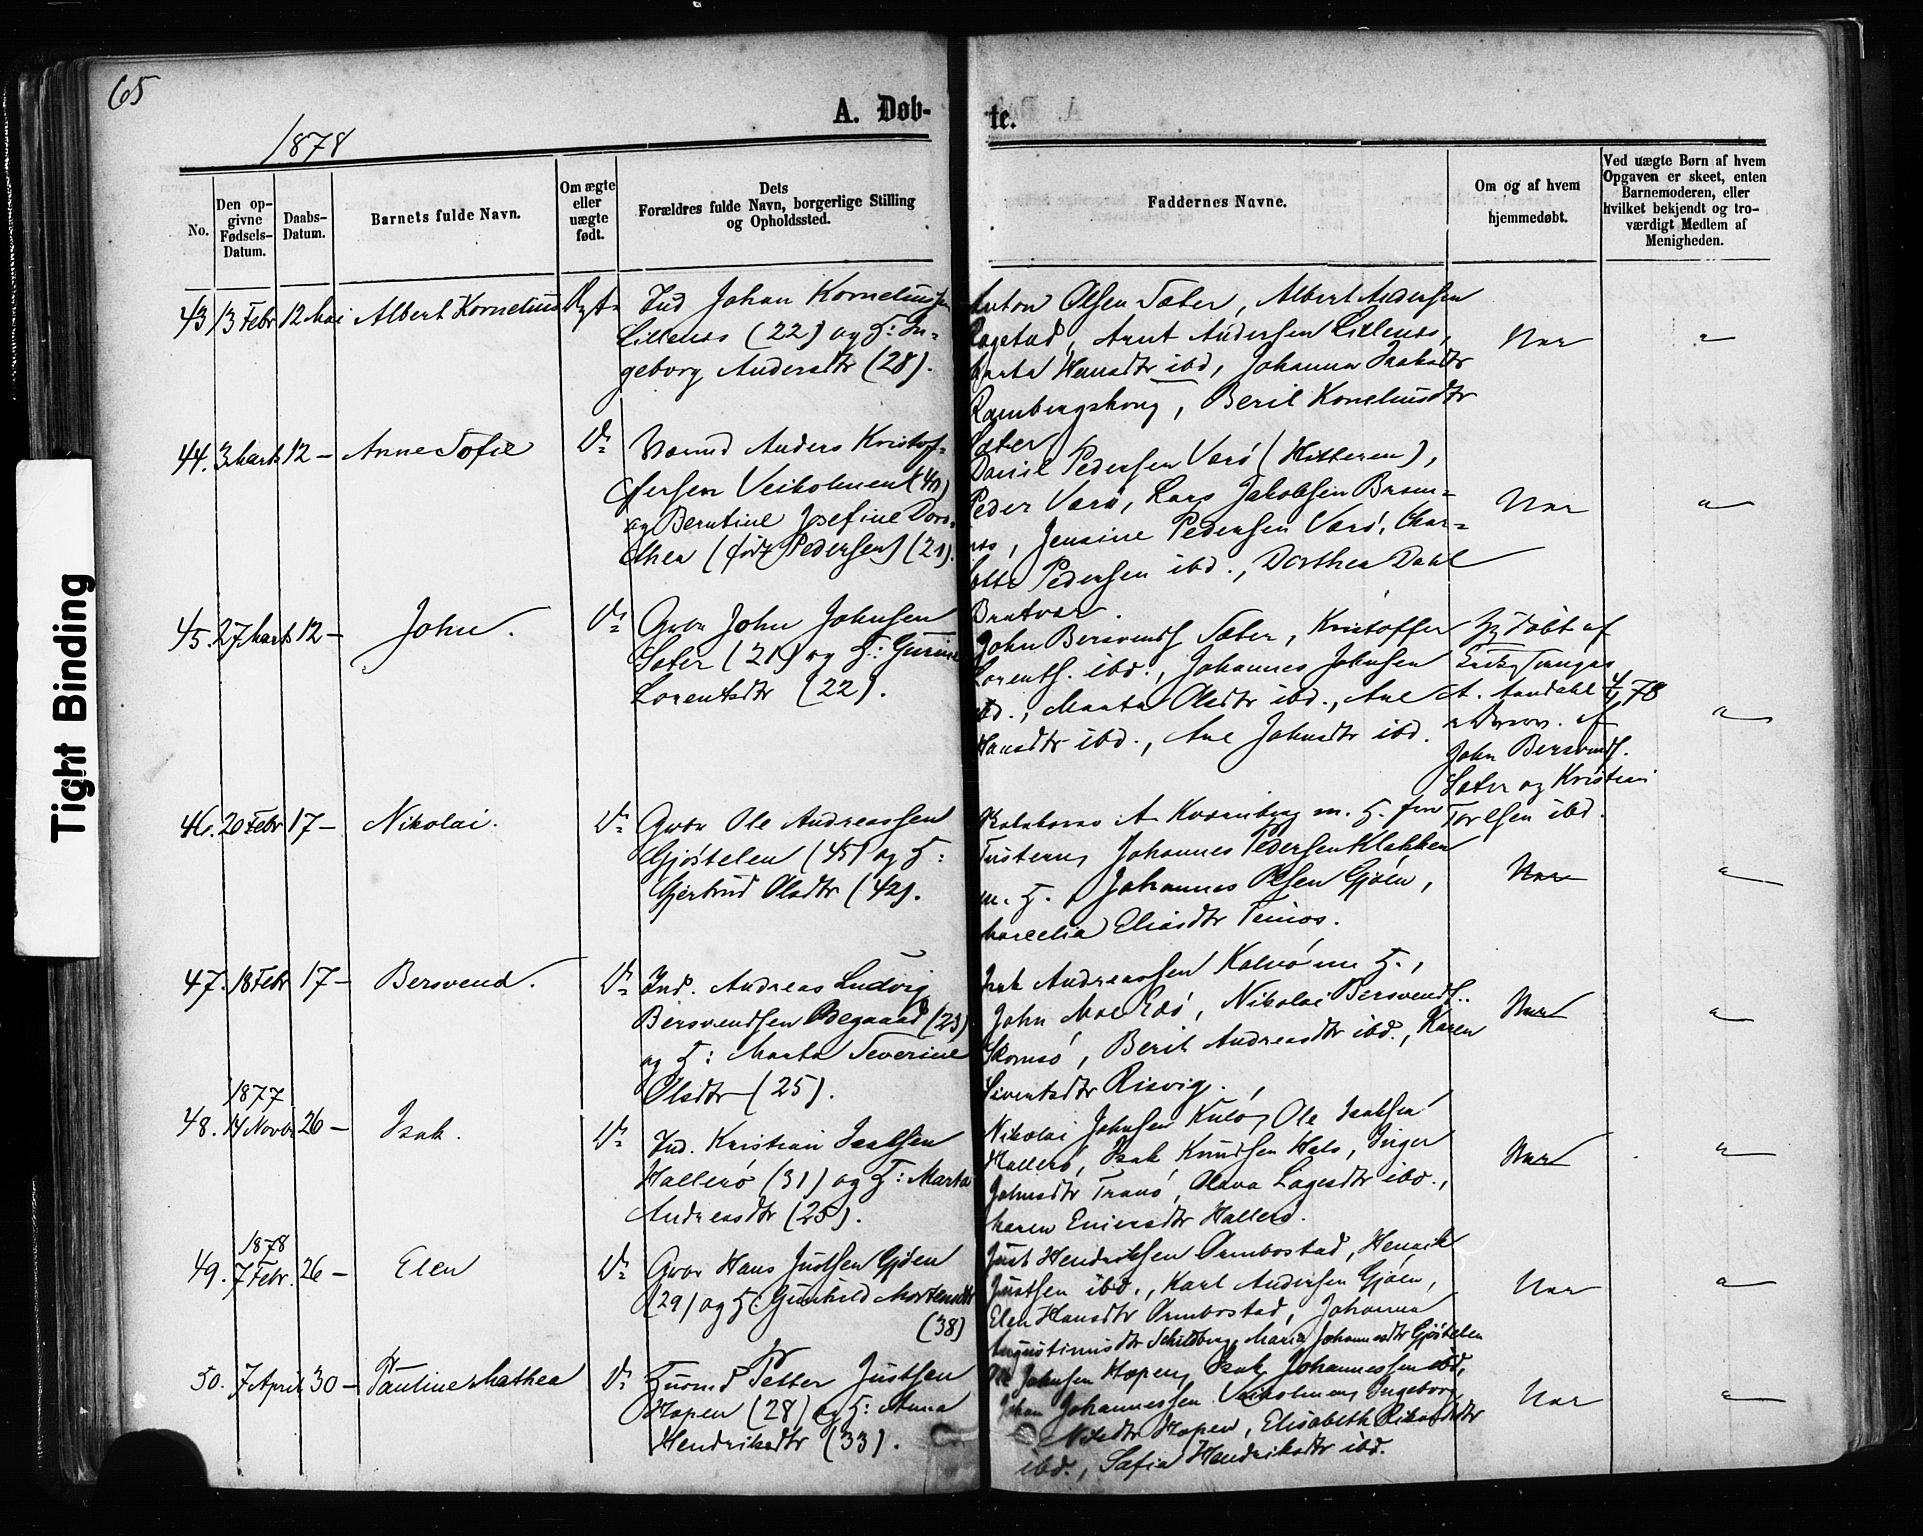 65
A. Døb-
te.
1878
No.
Den op-
givne
Fødsels-
Datum.
Daabs-
Datum.
Barnets fulde Navn.
Om ægte
eller
uægte
født.
Dets
Forældres fulde Navn, borgerlige Stilling
og Opholdssted.
Faddernes Navne.
Om og af hvem
hjemmedøbt.
Ved uægte Børn af hvem
Opgaven er skeet, enten
Barnemoderen, eller
hvilket bekjendt og tro-
værdigt Medlem af
Menigheden.
43 13 Febr 12 Mai Albert Kornelius
Ind Johan Korneliussen
Lillenes (22) og H: In-
geborg Andersdtr (28).
Anton Olsen Sæter, Albert Andersen
Arnt Andersen Lillenes,
Marta Hansdtr ibd, Johanna Isaksdtr
Berit Korneliusdtr
Sæter
44. 3 Marts 12 – Anne Sofie
Anders Kristof-
fersen Veiholmen (40)
og Berntine Josefine Doro-
thea (født Pedersen) (21).
Daniel Pedersen Værø (Hitteren),
Peder Værø, Lars Jakobsen Brem-
nes, Jensine Pedersen Værø, Char-
lotte Pedersen ibd., Dorthea Dahl
Bratvær.
45. 27 Marts 12 – John.
Gbr John Johnsen
Sæter (21) og H: Gurine
Lorentsdtr (22).
John Bersvends. Sæter, Kristoffer
Lorents. ibd., Johannes Johnsen
ibd., Marta Olsdtr ibd., Ane
Hansdtr ibd., Ane Johnsdtr ibd.
Hj døbt af
af
John Bersvends.
Sæter og Kristian
ibd.
46. 20 Febr 17 – Nikolai.
Gbr Ole Andreassen
Gjøstelen (45) og H:
Gjertrud Olsdtr (42).
A Kvernberg m. H. fra
Tustern, Johannes Pedersen Klakken
m. H., Johannes Olsen Gjøen,
Eliasdtr
47. 18 Febr 17 – Bersvend.
Ind. Andreas Ludvig
Bersvendsen (23)
og H: Marta Severine
Olsdtr (25).
Isak Andreassen Kalvø m H.,
John Moe Edø, Nikolai Bersvends.
Skomsø, Berit Andreasdtr ibd., Karen
Sivertsdtr Risvig.
1877
48. 14 Novbr 26 – Isak.
Ind. Kristian Isaksen
Hallerø (31) og H: Marta
Andreasdtr (25).
Nikolai Johnsen Kulø, Ole Isaksen
Hallerø, Isak Knudsen Hals, Inger
Johnsdtr Tranø, Olava Lagesdtr ibd.,
Maren
1878
49. 7 Febr. 26 – Elen
Gbr Hans Justsen Gjøen
(29) og H: Gunhild Mortensdtr
(38)
Just Hendriksen Ormbostad, Henrik
Justsen ibd., Karl Andersen Gjøen,
Elen Hansdtr Ormbostad, Johanna
Augustinusdtr Schildberg, Maria Johannesdtr Gjøstelen
50. 7 April 30 – Pauline Mathea
Petter Justsen
Hopen (28) og H: Anna
Hendriksdtr (33).
Ole Johnsen Hopen, Isak Johannessen ibd,
Johan Johannessen Veiholmen, Ingeborg
Nilsdtr Hopen, Elisabeth
ibd., Sofia Hendriksdtr ibd.
Tight Binding